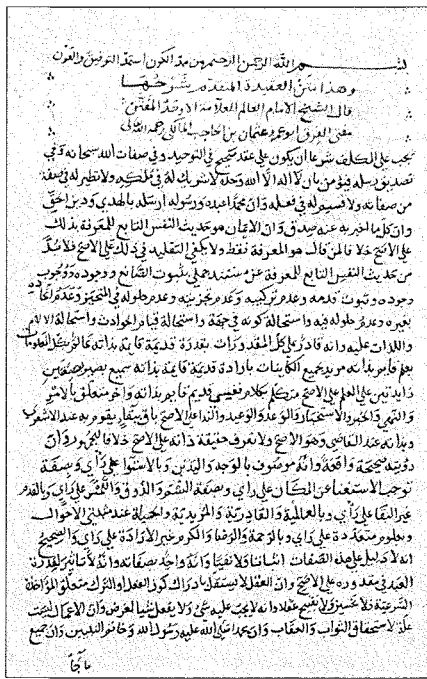 بسم الله الرحمن الرحيم ومن مد الكون استمد التوفيق والعون
وهذا متن العقيدة المتقدم شرحها
قال الشيخ الامام العالم العلامة الاوحد المفنن
مفتي الفرق ابو عمرو عثمان بن الحاجب المالكي رحمه الله تعالى
يجب على المكلف شرعا ان يكون على عقد صحيح في التوحيد وفي صفات الله سبحانه وفي
تصديق رسله فيؤمن بان لا اله الا الله وحده لا شريك له في ملكه ولا نظير له في صفة
من صفاته ولا قسيم له في فعله وان محمدا عبده ورسوله ارسله بالهدى ودين الحق
وان كل ما اخبر به عنه صدق وان الايمان هو حديث النفس التابع للمعرفة بذلك
على الاصح خلافا لمن قال هو المعرفة فقط ولا يكفي التقليد في ذلك على الاصح فلا بد
من حديث النفس التابع للمعرفة عن مستند جملي بثبوت الصانع ووجوده ووجوب
وجوده وثبوت قدمه وعدم تركيبه وعدم تجزيه وعدم حلوله في المتحيز وعدم اتحاده
بغيره وعدم حلوله فيه واستحالة كونه في جهة واستحالة قيام الحوادث واستحالة الالام
واللذات عليه وانه قادر على كل المقدورات بقدرة قديمة قايمة بذاته عالم بكل المعلومات
بعلم قايم بذاته مريد لجميع الكاينات بارادة قديمة قايمة بذاته سميع بصير بصفتين
زايدتين على العلم على الاصح متكلم بكلام نفسي قديم قايم بذاته وانه متعلق بالامر
والنهي والخبر والاستخبار والوعد والوعيد والنداء على الاصح باق ببقاء يقوم به عند الاشعري
وبذاته عند القاضي وهو الاصح ولا نعرف حقيقة ذاته على الاصح خلافا للجمهور وان
رؤيته صحيحة واقعة وانه موصوف بالوجه واليدين وبالاستوا على راي وبصفة
توجب الاستغنا عن المكان على راي وبصفة الشم والذوق واللمس على راي وبالقدم
غير البقا على راي وبالعالمية والقادرية والمريدية والحيية عند مثبتي الاحوال
وبعلوم متعددة على راي وبالرحمة والرضا والكرم غير الارادة على راي والصحيح
انه لا دليل على هذه الصفات اثباتا ولا نفيا وانه واحد بصفاته وانه لا تاثير لقدرة
العبد في مقدوره على الاصح وان العقل لا يستقل بادراك كون الفعل او الترك متعلق المؤاخذة
الشرعية فلا تحسين ولا تقبيح عقلا وانه لا يجب عليه شي ولا يفعل شيا لغرض وان الاعمال ليست
علة لاستحقاق الثواب والعقاب وان محمدا صلى الله عليه رسول الله وخاتم النبيين وان جميع
ما جا